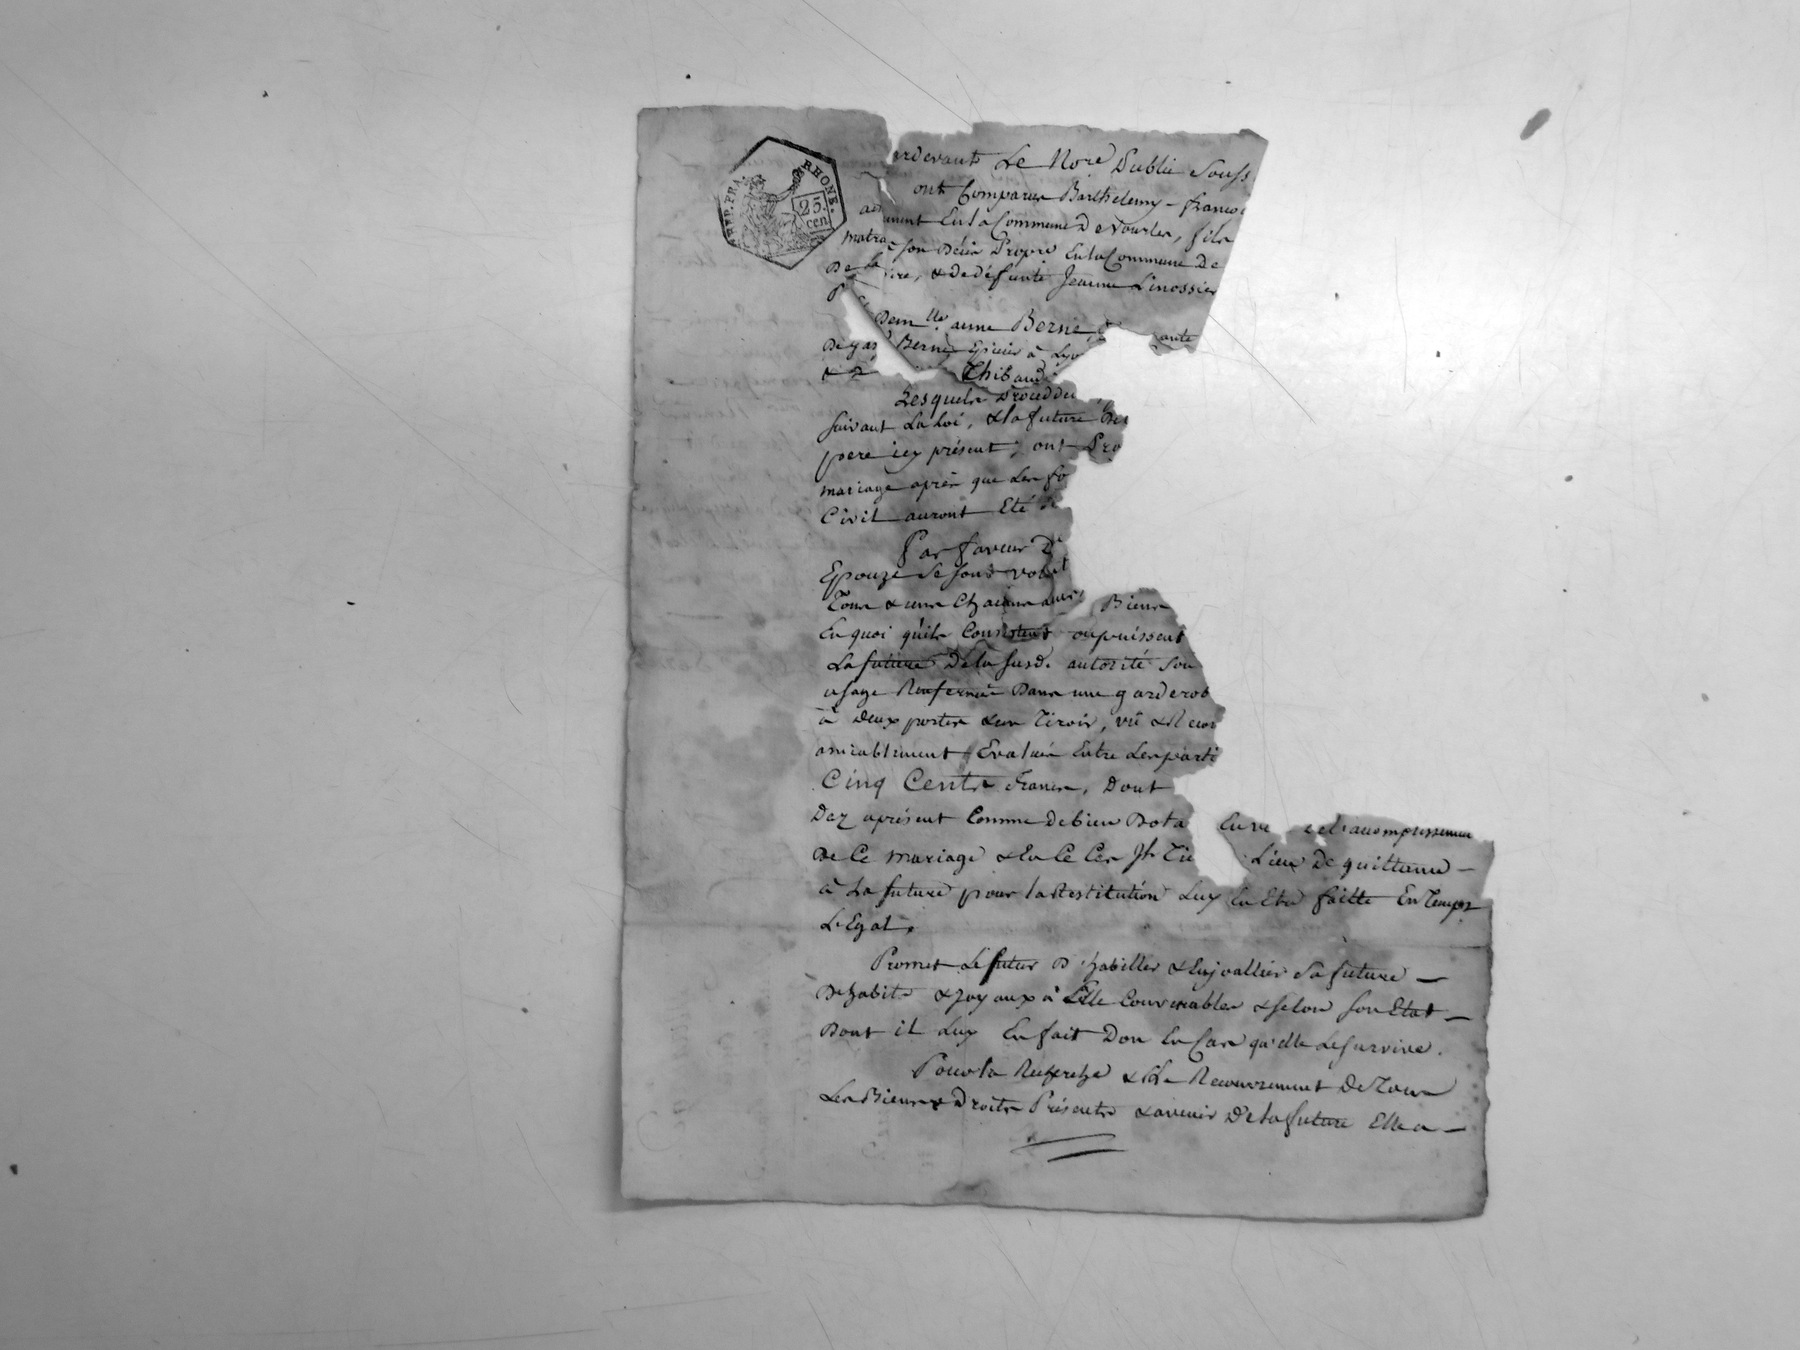 REP. FRA. RHONE.
25. cen
ardevant Le Nore. Public Souss
ont Comparus Barthelemy – francoi
En la Commune De vourles, fils
son Décès Propre En la Commune De
De la ire, & de défunte Jeanne Linossier
Demlle. anne Berne
De gas Berne Epicier à Lyo
& Thibaud
Lesquels Procédde
suivant La Loi, & la future
pere icy présent, ont Pro
mariage après que Les fo
Civil auront Eté
Par faveur D
Epouze se sont
Tous & uns Chacuns Biens
En quoi qu'ils Consistent ou puissent
La future De la susd. autorité son
usage Renfermée Dans une garderob
à deux portes & un Tiroir, vû & Recon
amiablement Evaluée Entre Les parti
Cinq Cents francs, Dont
Dez aprésent Comme de bien Dota accomplissement
De Ce mariage & En Ce Cas Lieu De quittance –
à La future pour la Restitution Luy En Etre faitte En Temps
LeEgal.
Promet Le futur D'habiller & Enjoallier Sa future –
D'habits & Joyaux à Elle Convenables & selon son Etat –
Dont il Luy En fait Don En Cas qu'elle Le survive.
Pour la Recherche & Le Recouvrement De Tous
Les Biens & Droits Présents & avenir De la future Elle a –